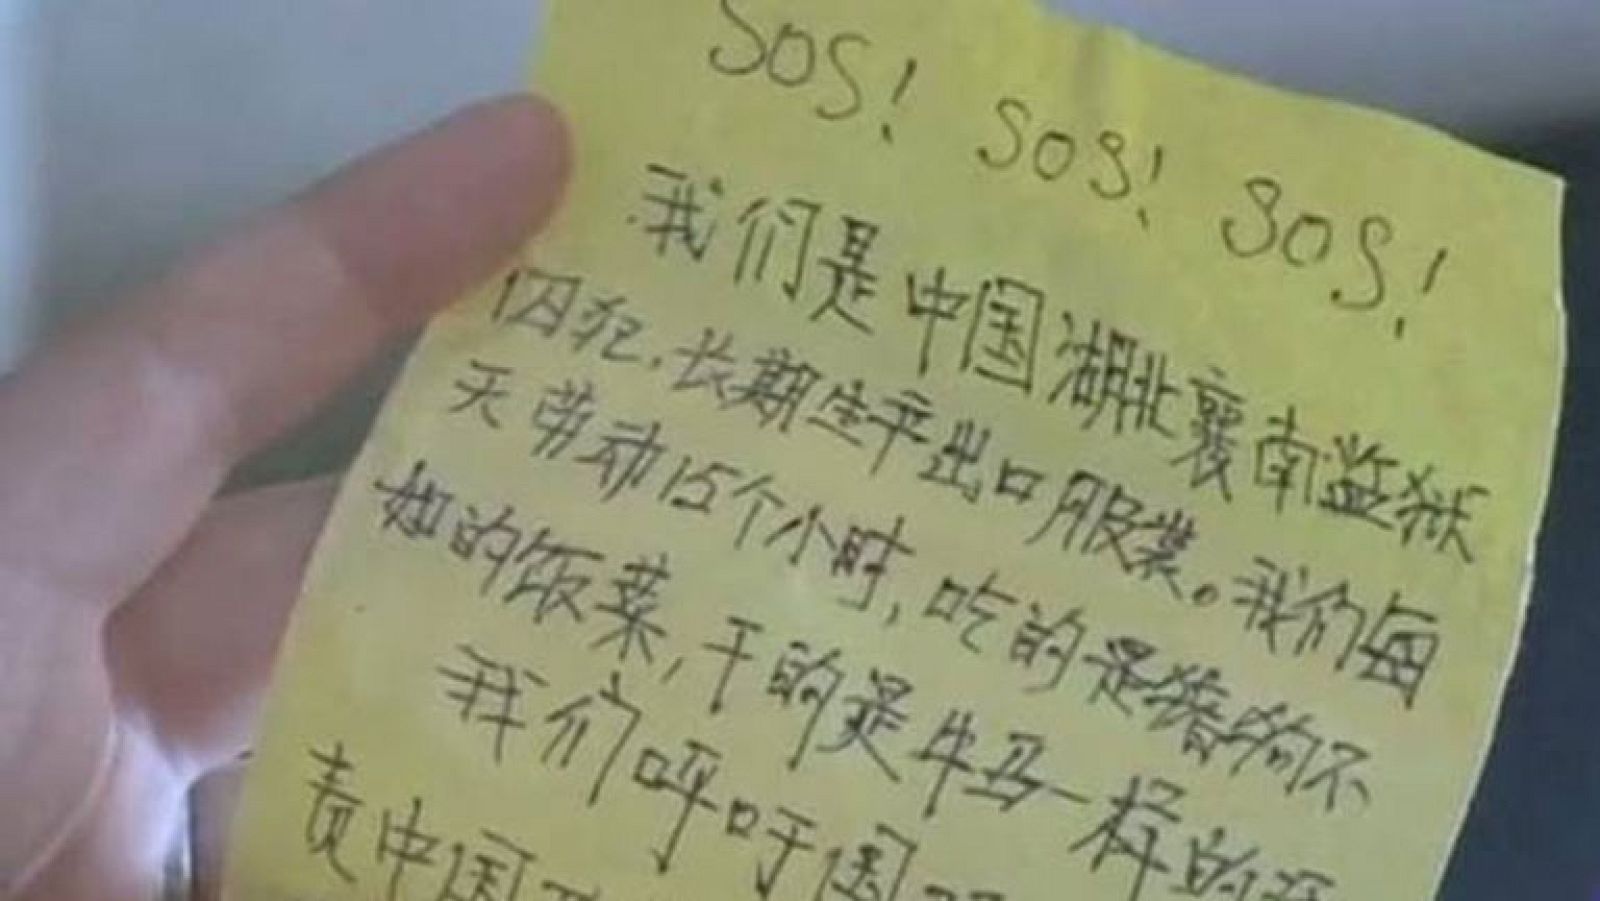 SOS! SOS! SOS!
我们是中国湖北襄南监狱
囚犯,长期生产出口服装。我们每
天劳动15个小时,吃的是猪狗不
如的饭菜,干的是牛马一样的
我们呼吁国
责中国